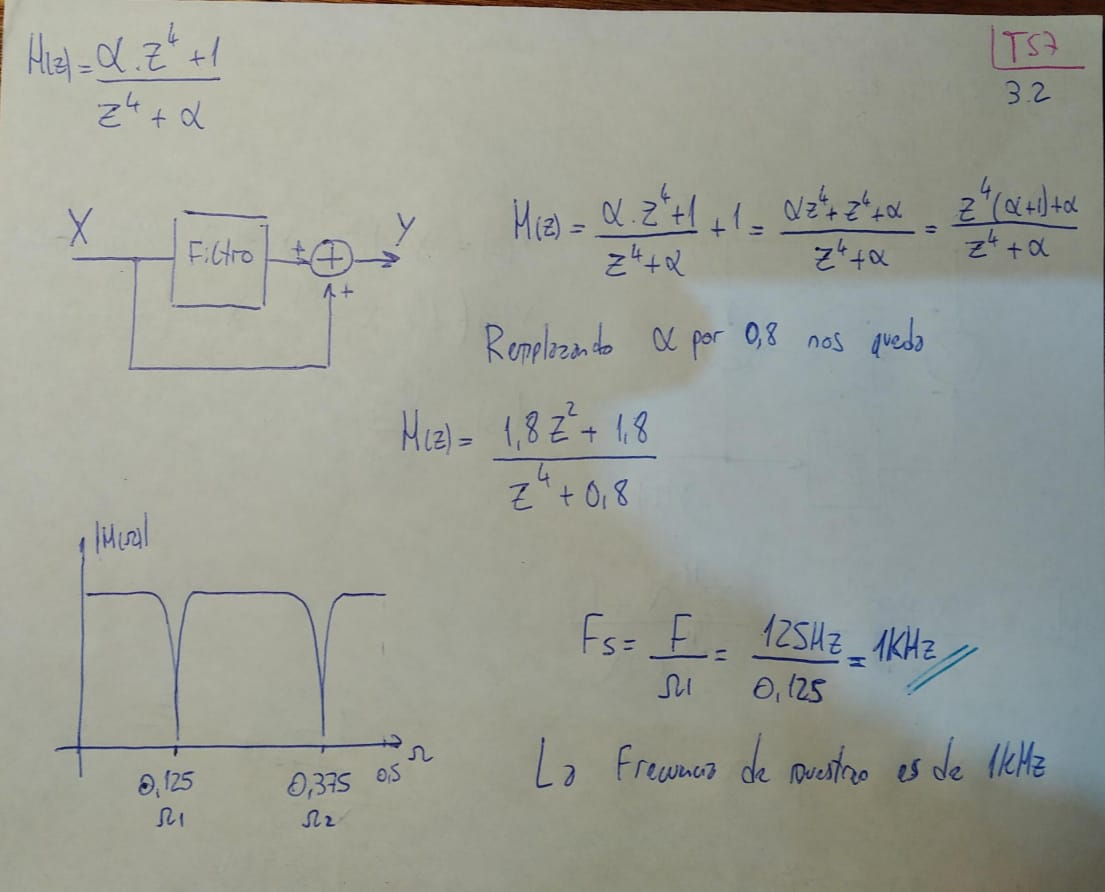 H(z) = (α.z⁴+1)/(z⁴+α)
TS7
3.2
X Filtro + + Y
+
H(z) = (α.z⁴+1)/(z⁴+α) + 1 = (αz⁴+z⁴+α)/(z⁴+α) = (z⁴(α+1)+α)/(z⁴+α)
Remplazando α por 0,8 nos queda
H(z) = (1,8z²+1,8)/(z⁴+0,8)
|H(Ω)|
0,125 0,375 0,5 Ω
Ω1 Ω2
Fs = F/Ω1 = 125Hz/0,125 = 1KHz
La Frecuencia de muestreo es de 1kHz